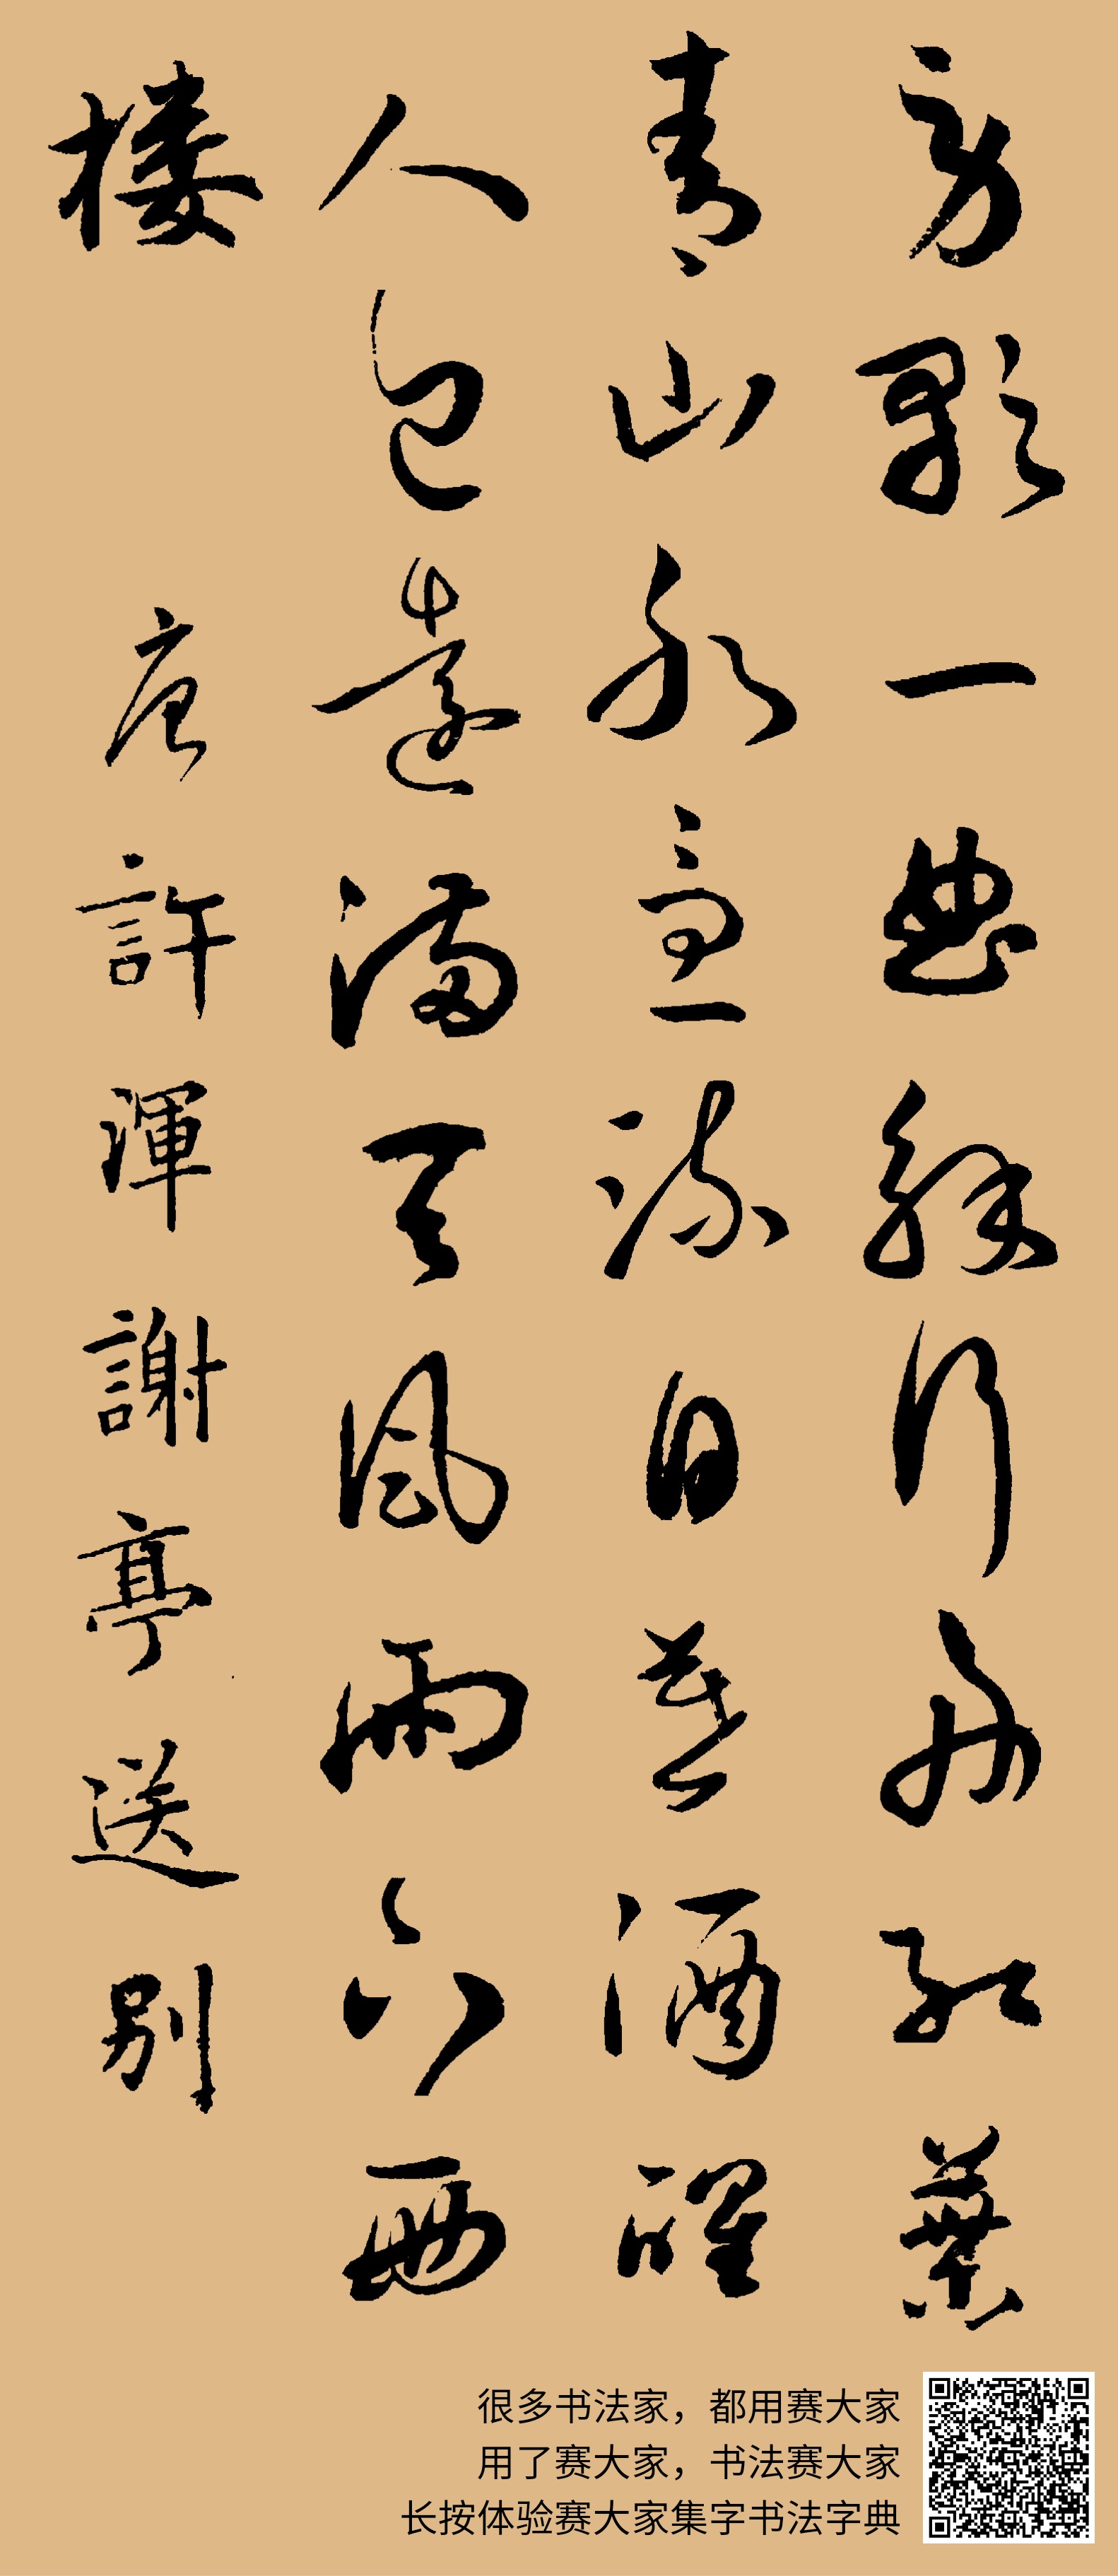 劳歌一曲解行舟红葉
青山水急流日暮酒醒
人已遠滿天風雨下西
楼 唐許渾謝亭送别
很多书法家，都用赛大家
用了赛大家，书法赛大家
长按体验赛大家集字书法字典